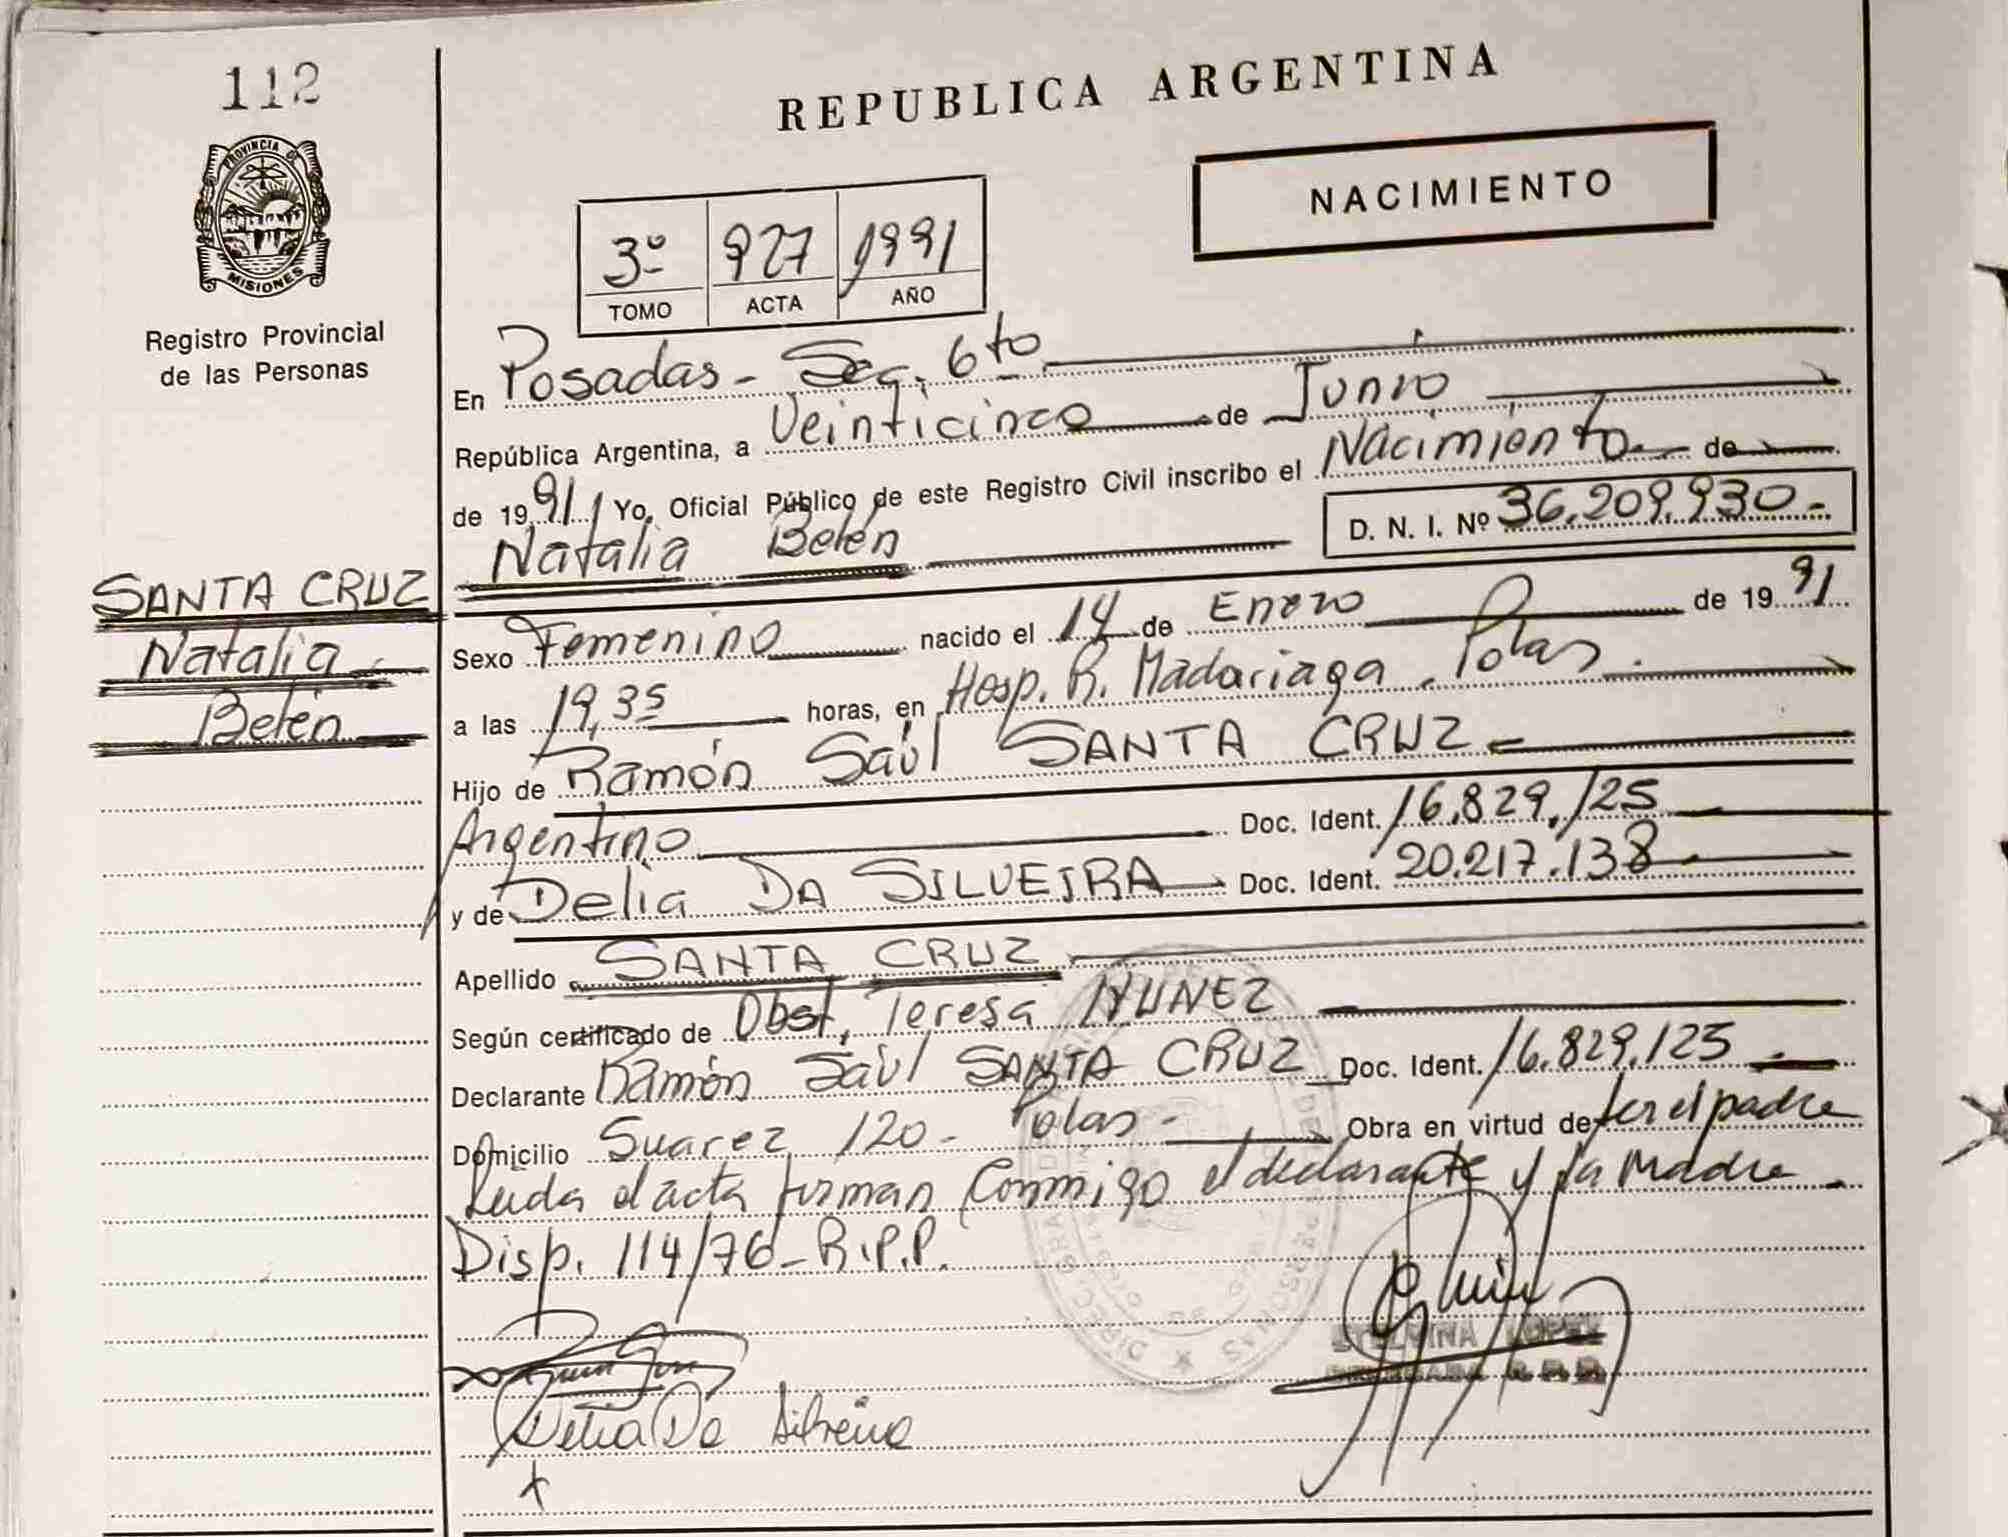 112
PROVINCIA DE
MISIONES
Registro Provincial
de las Personas
SANTA CRUZ
Natalia
Belén
REPUBLICA ARGENTINA
NACIMIENTO
3º 927 1991
TOMO ACTA AÑO
En Posadas - Sec. 6to
República Argentina, a Veinticinco de Junio
de 1991 Yo, Oficial Público de este Registro Civil inscribo el Nacimiento de
Natalia Belén D. N. I. Nº 36.209.930.-
Sexo Femenino nacido el 14 de Enero de 1991
a las 19,35 horas, en Hosp. R. Madariaga. Pdas.
Hijo de Ramón Saúl SANTA CRUZ
Argentino Doc. Ident. 16.829.125
y de Delia DA SILVEIRA Doc. Ident. 20.217.138.
Apellido SANTA CRUZ
Según certificado de Obst. Teresa NUNEZ
Declarante Ramón Saúl SANTA CRUZ Doc. Ident. 16.829.125
Domicilio Suarez 120 - Pdas - Obra en virtud de ser el padre
Leida el acta firman Conmigo el declarante y la Madre
Disp. 114/76 - R.P.P.
Delia Da Silveira